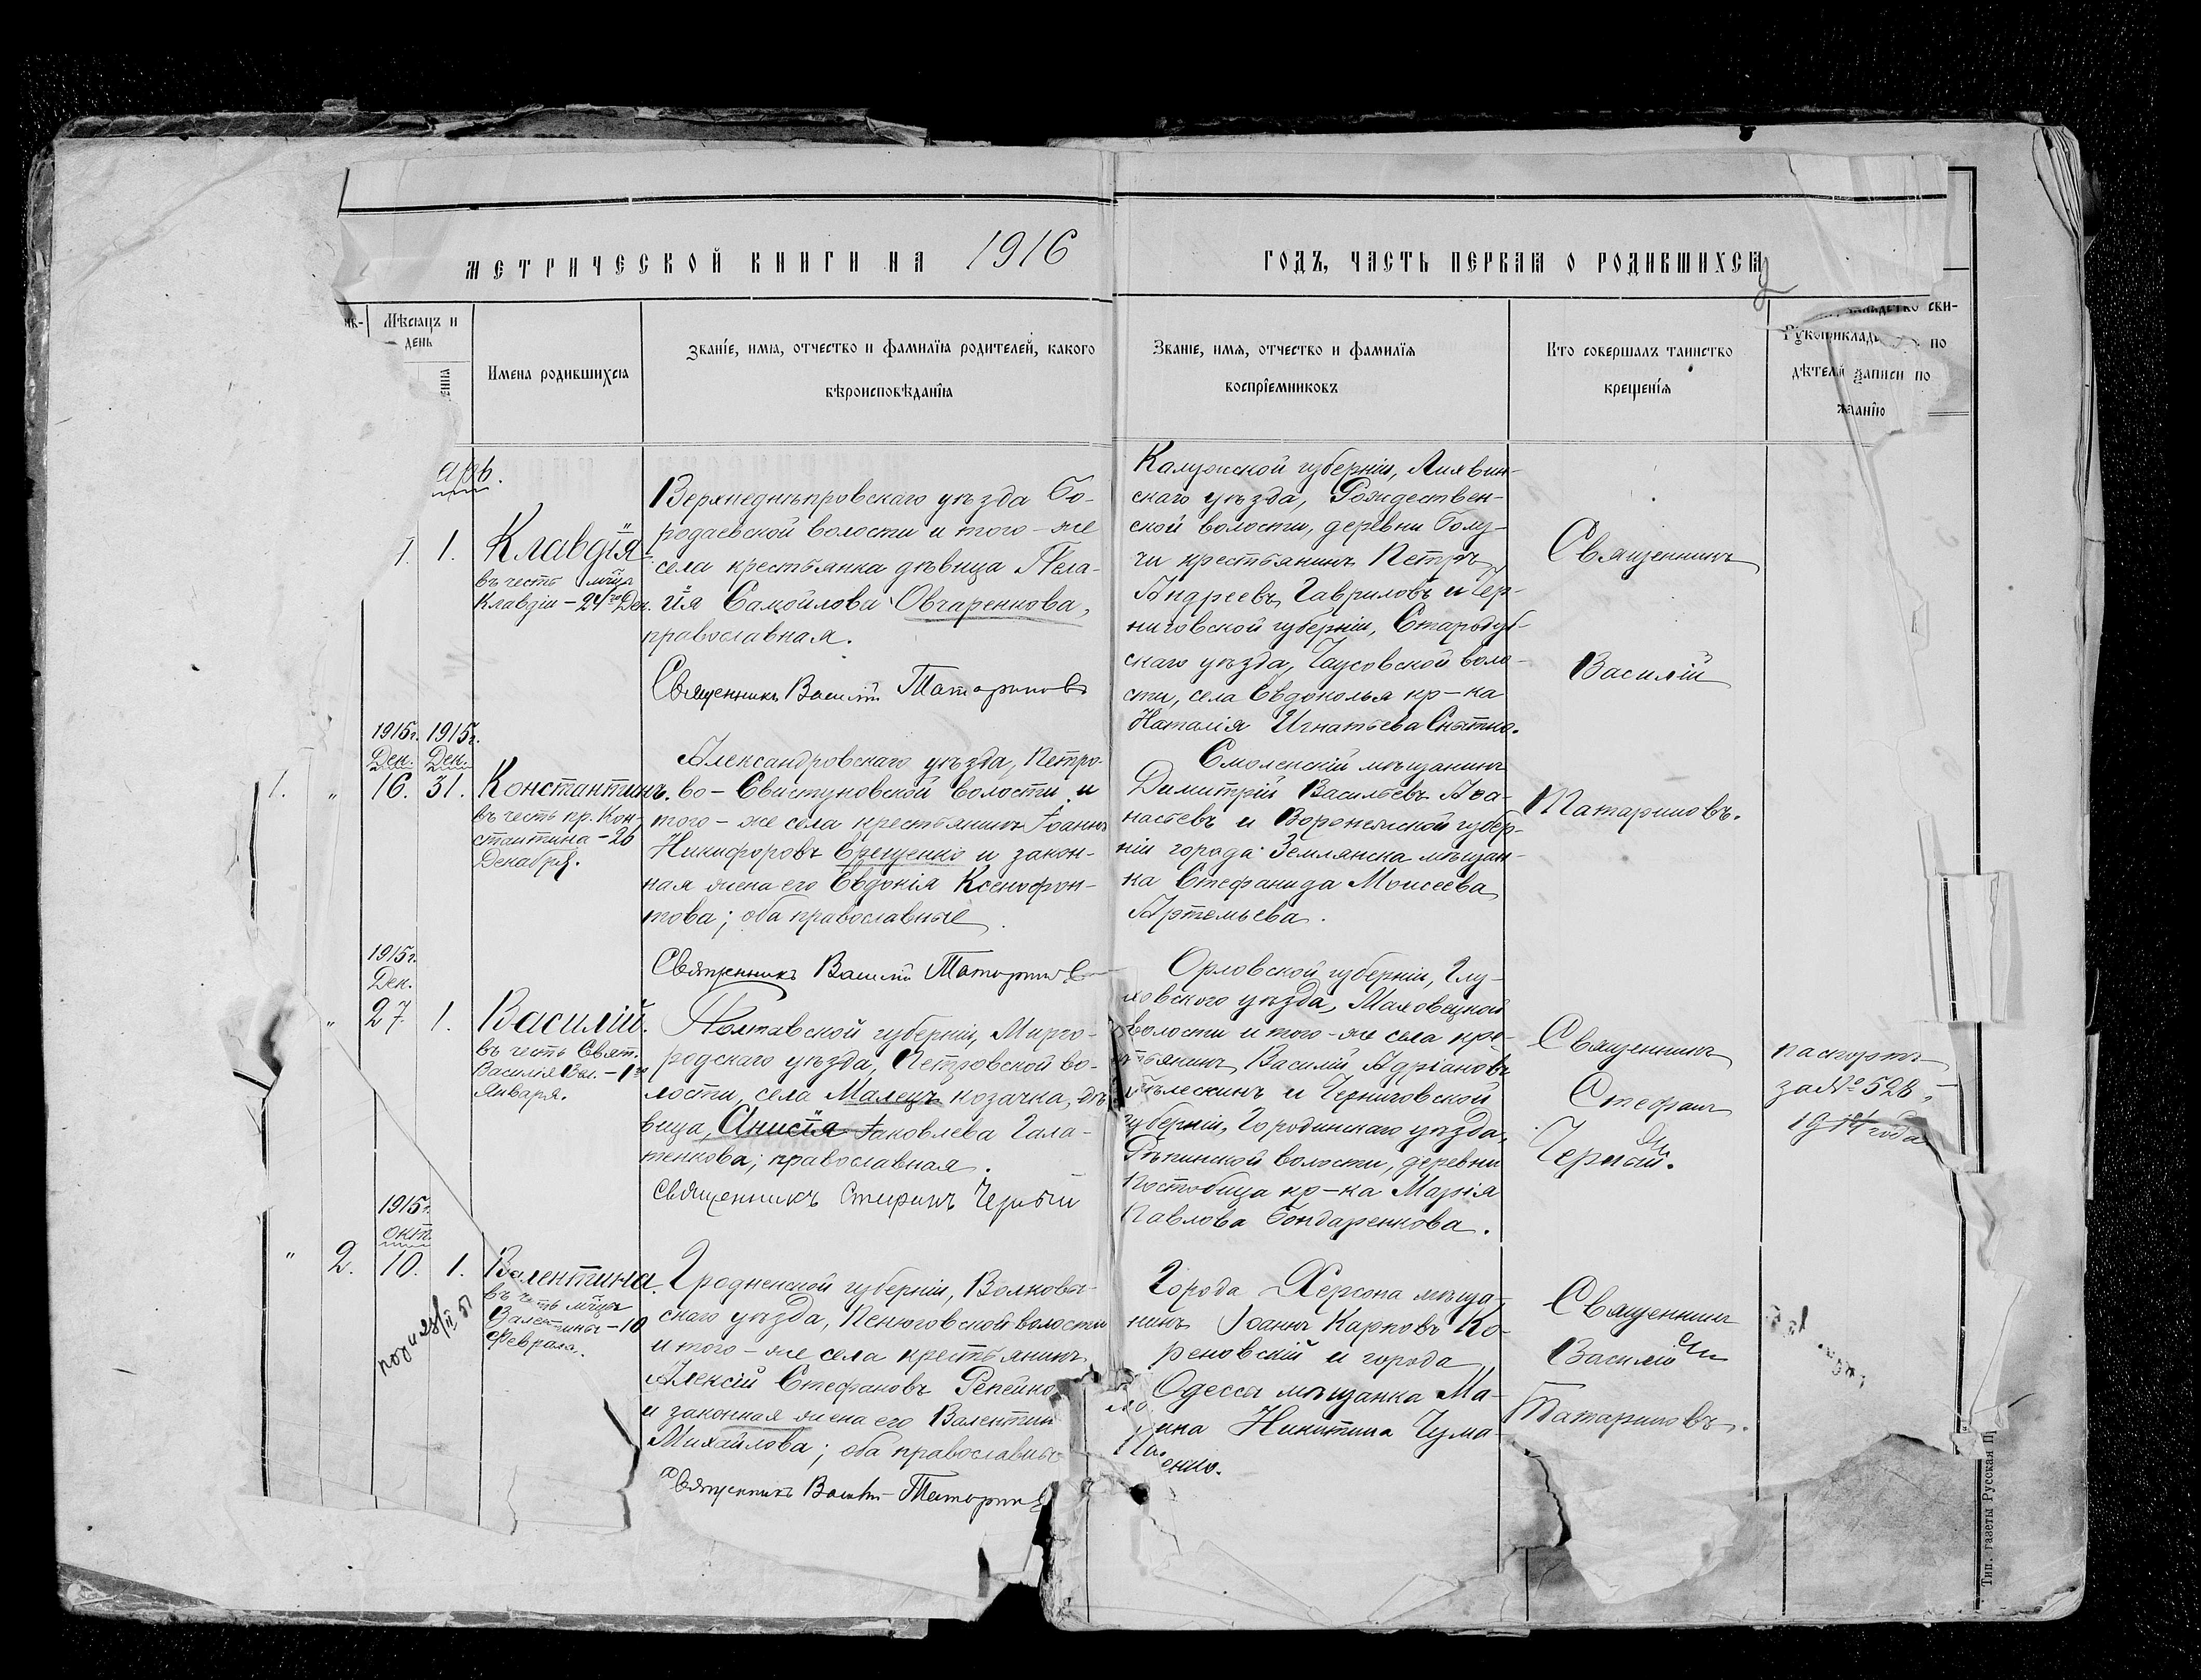 МЕТРИЧЕСКОЙ КНИГИ НА 1916
ГОДЪ, ЧАСТЬ ПЕРВАЯ О РОДИВШИХСЯ
Мѣсяцъ и
день
Имена родившихся
Званіе, имя, отчество и фамилія родителей, какого
вѣроисповѣданія
Званіе, имя, отчество и фамилія
воспріемниковъ
Кто совершалъ таинство
крещенія
сви-
по
дѣтелей записи по
желанію
1. 1. Клавдія
въ честь мцы
Клавдіи – 24го Дек.
Верхнеднѣпровскаго уѣзда Бо-
родаевской волости и того-же
села крестьянка дѣвица Пела-
гія Самойлова Овчаренкова,
православная.
Священникъ Василій Татариновъ
Калужской губерніи, Лихвин-
скаго уѣзда, Рождествен-
ской волости, деревни Голу-
чи крестьянинъ Петръ
Андреевъ Гавриловъ и Чер-
ниговской губерніи, Стародуб-
скаго уѣзда, Чаусовской воло-
сти, села Евдоколья кр-ка
Наталія Игнатьева Снытко.
Священникъ
Василій
Татариновъ.
1915г. 1915г.
Дек. Дек.
1. " 16. 31. Константинъ.
въ честь пр. Кон-
стантина – 26
Декабря.
Александровскаго уѣзда, Петро-
во-Свистуновской волости и
того-же села крестьянинъ Іоаннъ
Никифоровъ Ерещенко и закон-
ная жена его Евдокія Ксенофон-
това; оба православные
Священникъ Василій Татариновъ
Смоленскій мѣщанинъ
Димитрій Васильевъ Аѳа-
насьевъ и Воронежской губер-
ніи города Землянска мѣщан-
ка Стефанида Моисеева
Артемьева.
1915г.
Дек.
" 27. 1. Василій.
въ честь Свят.
Василія Вел. – 1го
Января.
Полтавской губерніи, Мирго-
родскаго уѣзда, Петровской во-
лости, села Малецъ козачка, дѣ-
вица, Анисія Іаковлева Гала-
тенкова; православная.
Священникъ Стефанъ Черный
Орловской губерніи,
уѣзда,
волости и того-же села кре-
стьянинъ Василій Адріановъ
и Черниговской
губерніи, Городнискаго уѣзда,
Рѣпинской волости, деревни
кр-ка Марія
Павлова Бондаренкова.
Священникъ
Стефанъ
Черный.
паспортъ
за № 528,
1914 года
1915г.
окт.
" 2. 10. 1. Валентина.
въ честь мцы
Валентины – 10
Февраля.
Гродненской губерніи, Волковы-
скаго уѣзда, Пенюговской волости
и того-же села крестьянинъ
Алексій Стефановъ Репейко
и законная жена его Валентин
Михайлова; оба православные
Священникъ Василій Татариновъ
Города Херсона мѣща-
нинъ Іоаннъ Карповъ Ко-
реновскій и города
Одессы мѣщанка Ма-
Никитина Чума-
енко.
Священникъ
Василій
Татариновъ.
Тип. газеты Русская П